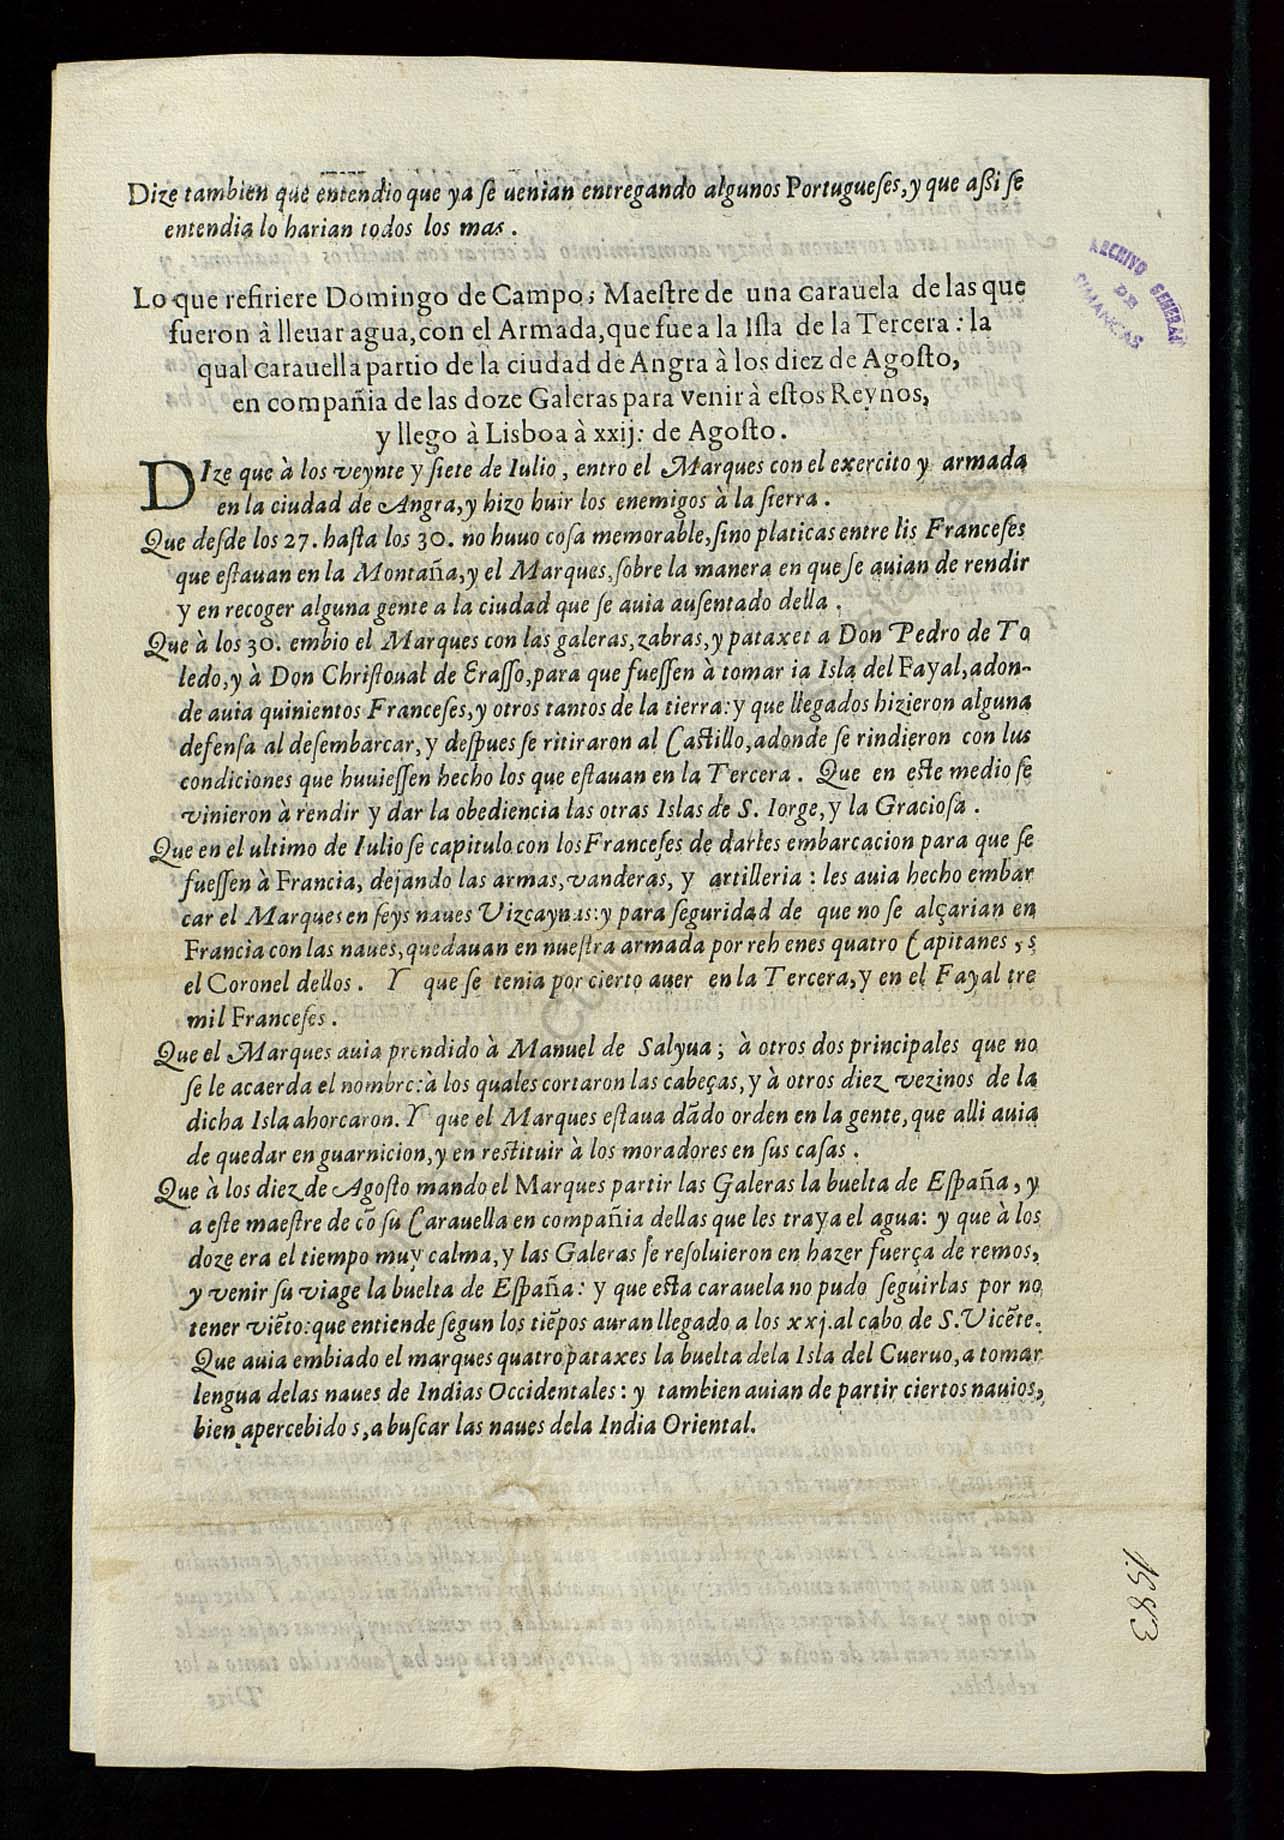 Dize tambien que entendio que ya se uenian entregando algunos Portugueses, y que assi se
entendia lo harian todos los mas.
Lo que refiriere Domingo de Campo; Maestre de una carauela de las que
fueron â lleuar agua, con el Armada, que fue a la Isla de la Tercera: la
qual carauella partio de la ciudad de Angra à los diez de Agosto,
en compañia de las doze Galeras para venir à estos Reynos,
y llego à Lisboa à xxij: de Agosto.
DIze que à los veynte y siete de Iulio, entro el Marques con el exercito y armada
en la ciudad de Angra, y hizo huir los enemigos à la sierra.
Que desde los 27. hasta los 30. no huuo cosa memorable, sino platicas entre lis Franceses
que estauan en la Montaña, y el Marques, sobre la manera en que se auian de rendir
y en recoger alguna gente a la ciudad que se auia ausentado della.
Que à los 30. embio el Marques con las galeras, zabras, y pataxet a Don Pedro de To
ledo, y à Don Christoual de Erasso, para que fuessen à tomar ia Isla del Fayal, adon-
de auia quinientos Franceses, y otros tantos de la tierra: y que llegados hizieron alguna
defensa al desembarcar, y despues se ritiraron al Castillo, adonde se rindieron con lus
condiciones que huuiessen hecho los que estauan en la Tercera. Que en este medio se
vinieron à rendir y dar la obediencia las otras Islas de S. Iorge, y la Graciosa.
Que en el ultimo de Iulio se capitulo con los Franceses de darles embarcacion para que se
fuessen à Francia, dejando las armas, vanderas, y artilleria: les auia hecho embar
car el Marques en seys naues Vizcaynas: y para seguridad de que no se alçarian en
Francia con las naues, quedauan en nuestra armada por reh enes quatro Capitanes, s
el Coronel dellos. Y que se tenia por cierto auer en la Tercera, y en el Fayal tre
mil Franceses.
Que el Marques auia prendido à Manuel de Salyua; à otros dos principales que no
se le acaerda el nombre: à los quales cortaron las cabeças, y à otros diez vezinos de la
dicha Isla ahorcaron. Y que el Marques estaua dãdo orden en la gente, que alli auia
de quedar en guarnicion, y en restituir à los moradores en sus casas.
Que à los diez de Agosto mando el Marques partir las Galeras la buelta de España, y
a este maestre de cõ su Carauella en compañia dellas que les traya el agua: y que à los
doze era el tiempo muy calma, y las Galeras se resoluieron en hazer fuerça de remos,
y venir su viage la buelta de España: y que esta carauela no pudo seguirlas por no
tener viẽto: que entiende segun los tiẽpos auran llegado a los xxj. al cabo de S. Vicẽte.
Que auia embiado el marques quatro pataxes la buelta dela Isla del Cueruo, a tomar
lengua delas naues de Indias Occidentales: y tambien auian de partir ciertos nauios,
bien apercebido s, a buscar las naues dela India Oriental.
ARCHIVO GENERAL
DE
SIMANCAS
1583